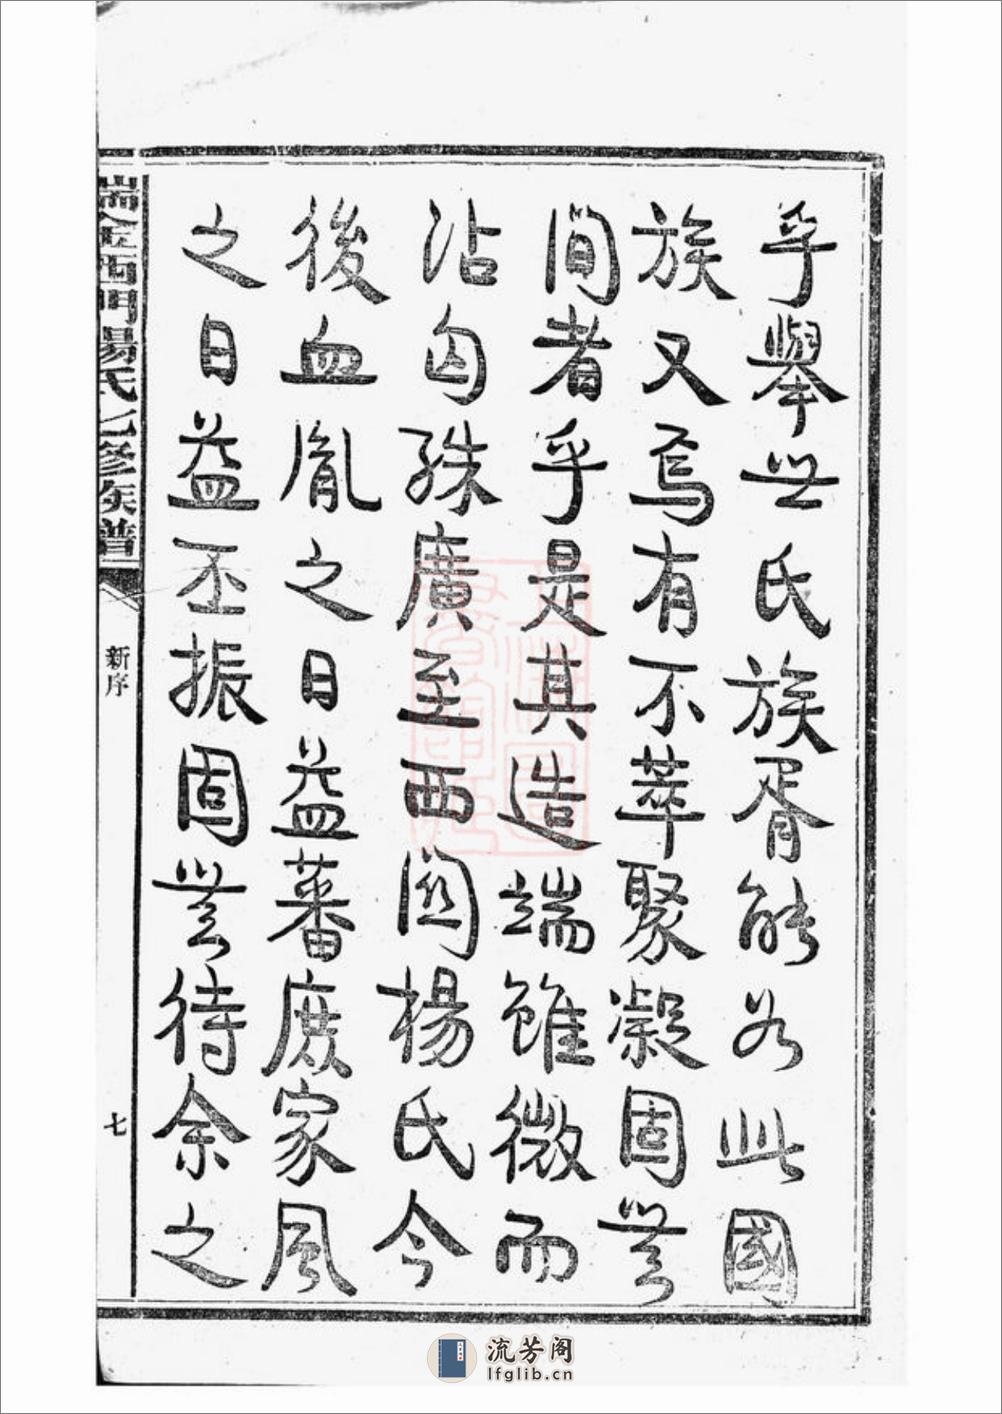 乎舉世氏族胥能若此國
族又焉有不萃聚凝固無
間者乎是其造端雖微而
沾匄殊廣至西關楊氏今
後血胤之日益蕃庶家風
之日益丕振固無待余之
瑞金西門楊氏七修族譜
新序
七
流芳阁
lfglib.cn